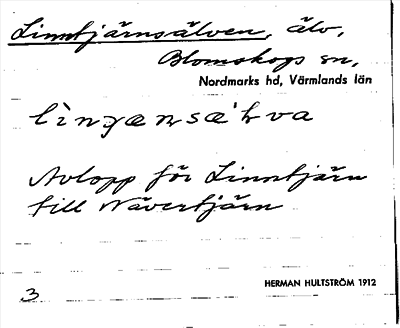 Linntjärnsälven, älv,
Blomskogs sn,
Nordmarks hd, Värmlands län
Avlopp för Linntjärn
till Nävertjärn
3 HERMAN HULTSTRÖM 1912